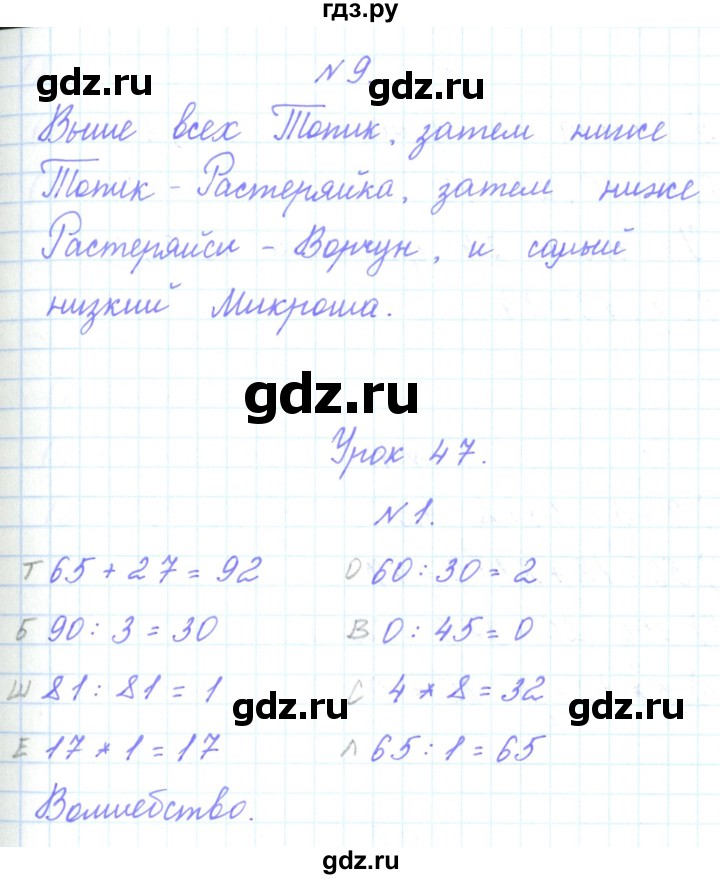 гдз.ру
gdz.ru gdz.ru
№ 9.
Выше всех Топик, затем ниже
Топик - Растеряйка, затем ниже
Растеряйси - Ворчун, и самый
низкий Микроша.
gdz.ru
Урок 47.
№ 1.
Т 65 + 27 = 92 О 60 : 30 = 2
Б 90 : 3 = 30 В 0 : 45 = 0
Ш 81 : 81 = 1 С 4 * 8 = 32
gdz.ru gdz.ru
Е 17 * 1 = 17 Л 65 : 1 = 65
Волшебство.
gdz.ru